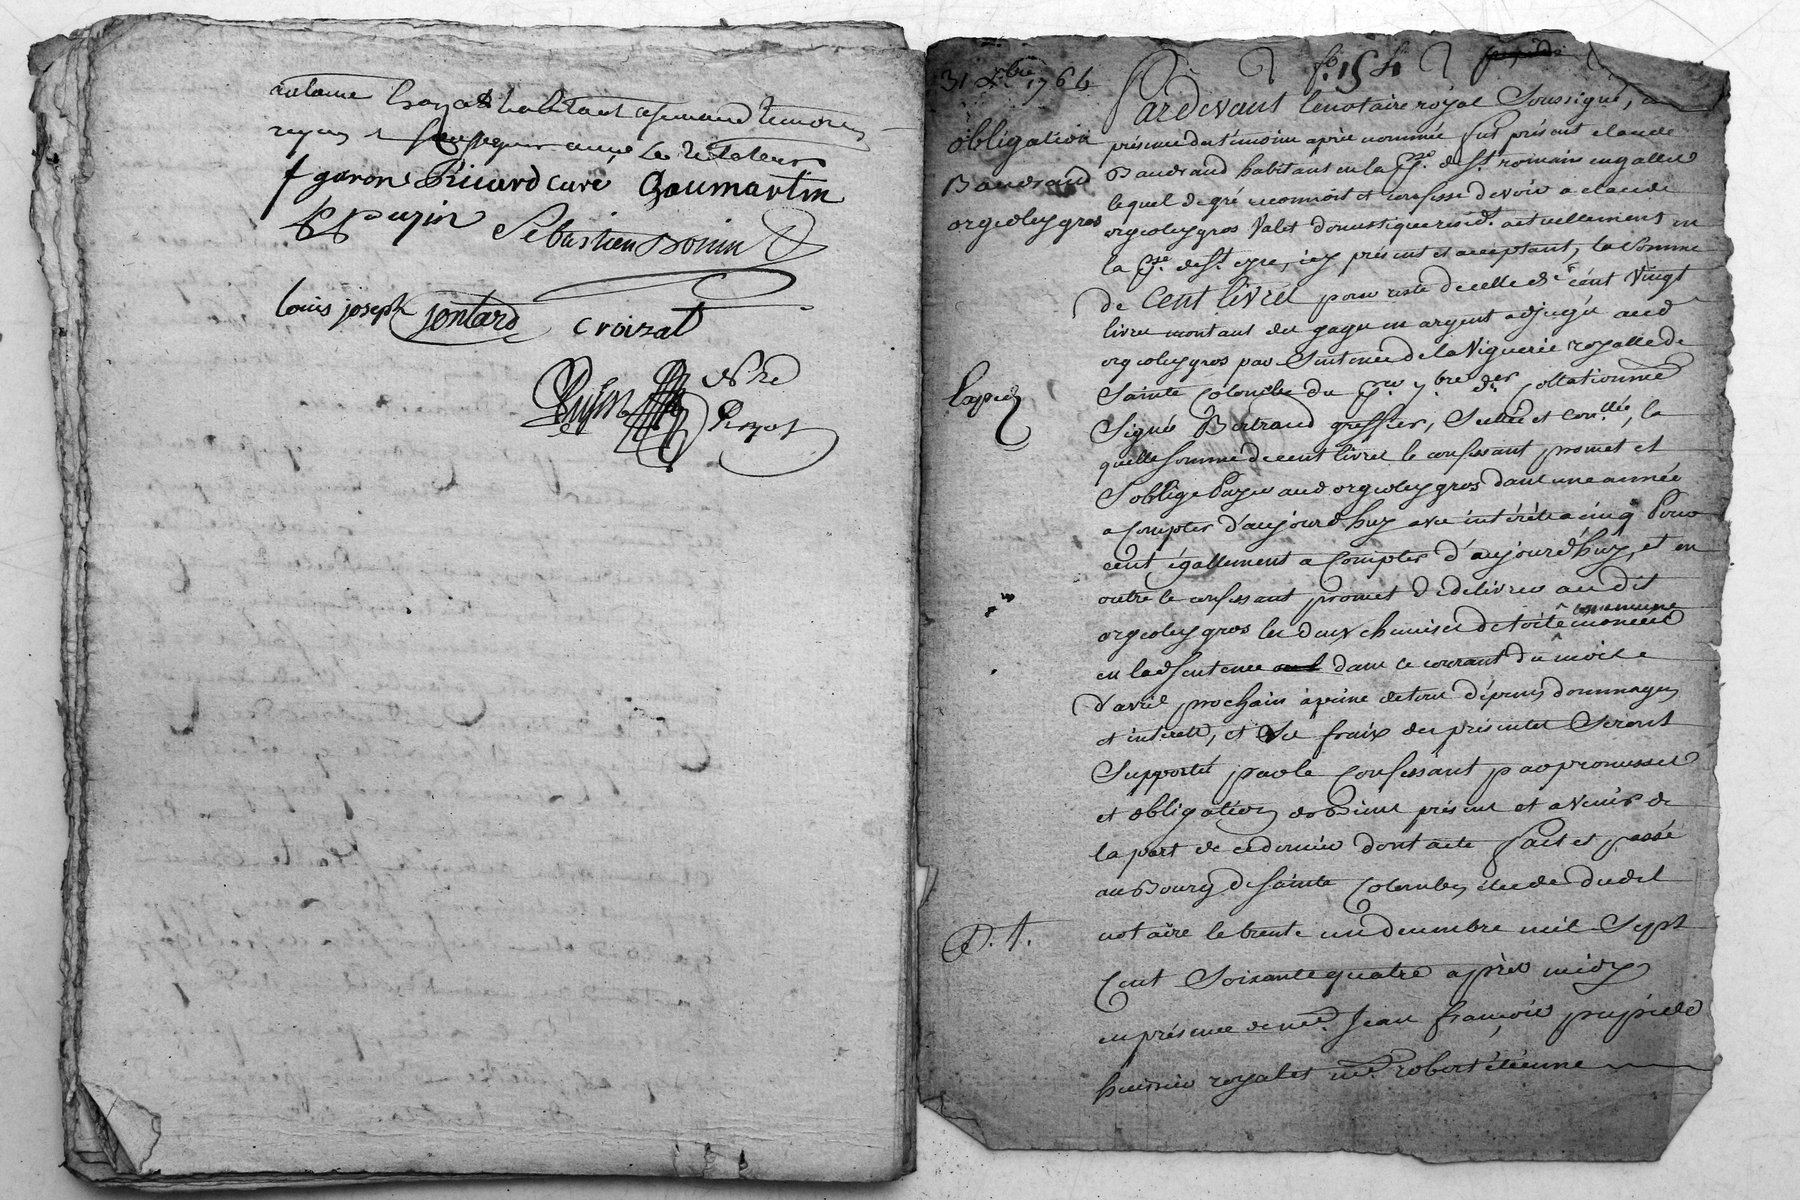 antoine habitant temoins
requis Soussignes avec les
f garon Ricard curé Gaumartin
Sebastien Bonin
louis joseph jontard croizat
Nre
31 Xbre 1764
obligation
Baudrand
orgeoleygros
Expiée
P. A.
fo. 154
Pardevant le notaire royal Soussigné, en
présence des témoins après nommés fut présent claude
Baudrand habitant en la psse. de St. romain en gallet
lequel de gré reconnoit et confesse devoir a claude
orgeoleygros Valet domestique résidt. actuellement en
la psse. de St. cyre, icy présent et acceptant, la Somme
de Cent livres pour reste de celle de cent Vingt
livres montant des gages en argent adjugés aud
orgeoleygros par Sentence de la Viguerie royalle de
Sainte Colombe du 7bre der. collationnée
Signée Bertrand greffier, Sellée et conllée, la
quelle somme de cent livres le confessant promet et
S'oblige Payer aud orgeoleygros dans une année
a compter d'aujourd'huy avec intérêts a cinq Pour
cent égallement a compter d'aujourd'huy, et en
outre le confessant promet de délivrer au dit
orgeoleygros les deux chemises de toile commune énoncées
en lad sentence dans le courant du mois
d'avril prochain à peine de tous dépens, dommages
et interets, et les fraix des présentes Seront
Supportés par le Confessant par promesses
et obligation de Biens présens et avenir de
la part de ce dernier dont acte fait et passé
au Bourg de Sainte Colombe, étude dudit
notaire le trente un decembre mil Sept
Cent Soixante quatre après midy
en présence de me. Jean françois pupier
huissier royal et me. robert étienne